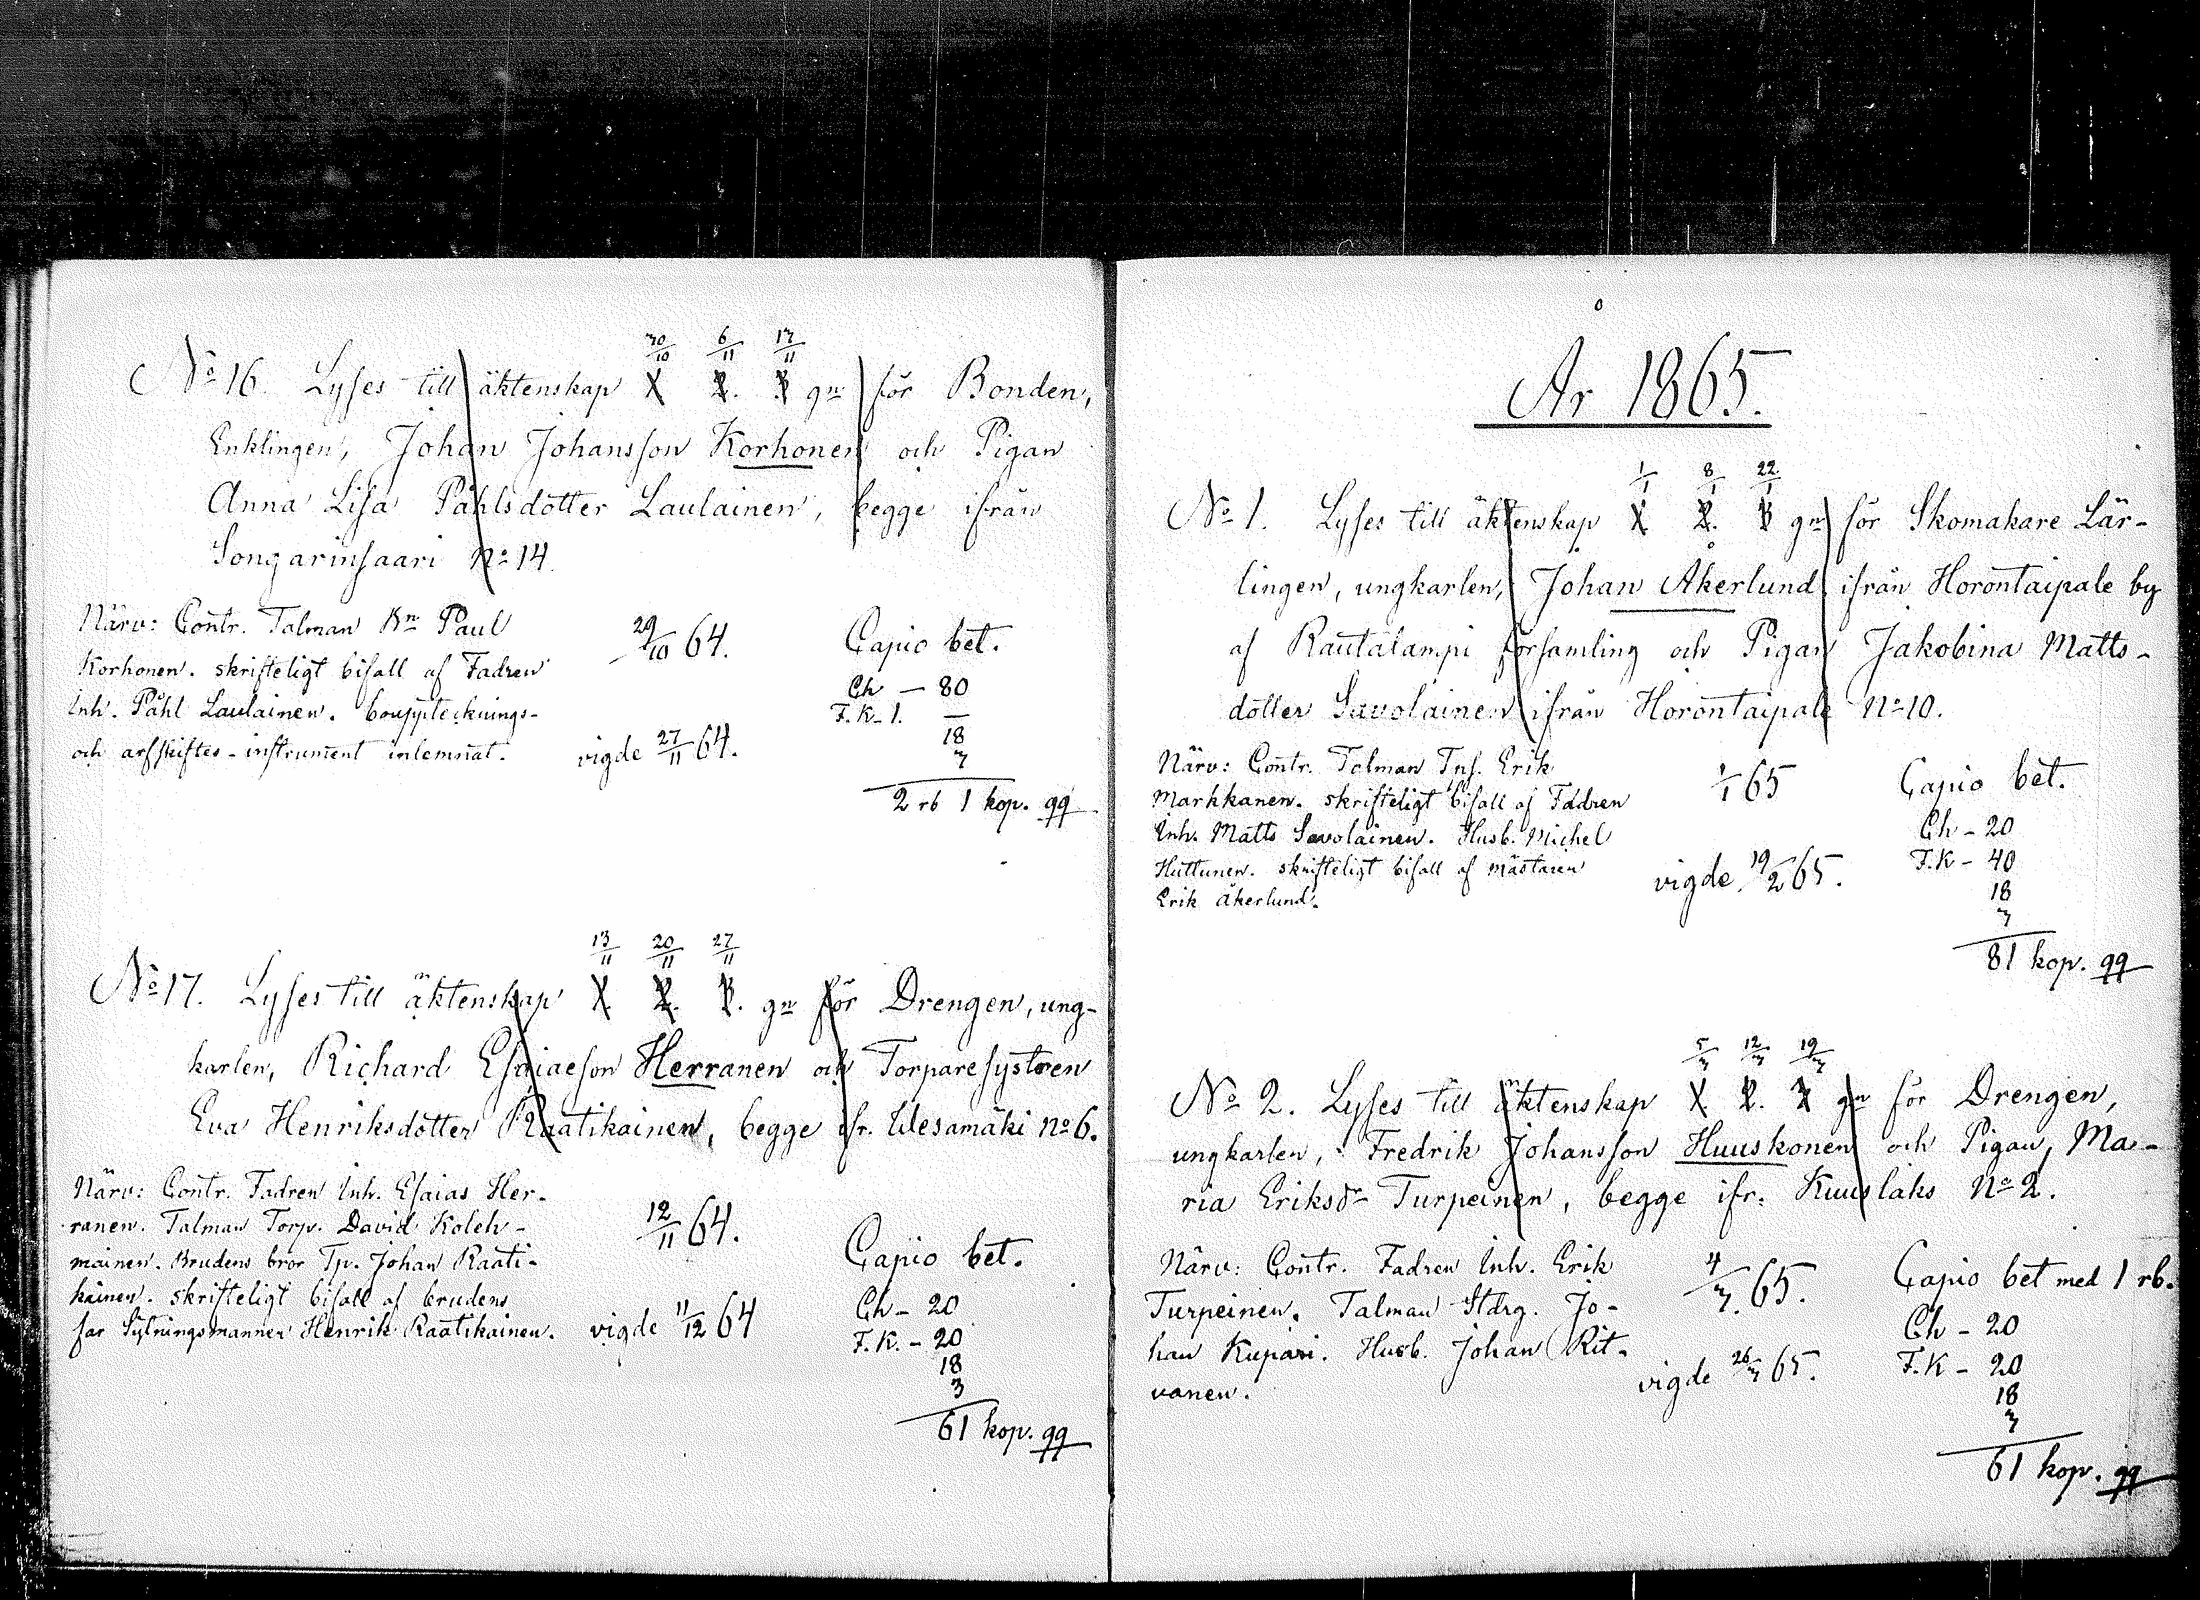 30/10 6/11 13/11
No 16. Lyses till äktenskap 1. 2. 3 gn för Bonden,
Enklingen, Johan Johansson Korhonen och Pigan
Anna Lisa Påhlsdotter Laulainen, begge ifrån
Songarinsaari No 14.
Närv: Contr. Talman Bn Paul
Korhonen. skrifteligt bifall af Fadren
Inh. Påhl Laulainen. boupptecknings-
och arfskiftes-instrument inlemnat.
29/10 64.
vigde 27/11 64.
Capio bet.
Ch — 80
F.K - 1. —
18
3
2 rb 1 kop. qq
13/11 20/11 27/11
No 17. Lyses till äktenskap 1. 2. 3. gn för Drengen, ung-
karlen, Richard Esaiaeson Herranen och Torparesystren
Eva Henriksdotter Raatikainen, begge ifr. Wesamäki No 6.
Närv: Contr. Fadren Inh. Esaias Her-
ranen. Talman Torp. David Koleh-
mainen. Brudens bror Tp. Johan Raati-
kainen. skrifteligt bifall af brudens
far Sytningsmannen Henrik Raatikainen.
12/11 64.
vigde 11/12 64
Capio bet.
Ch - 20
F.K. - 20
18
3
61 kop. qq
År 1865.
1/1 8/1 22/1
No 1. Lyses till äktenskap 1 2. 3 gn för Skomakare Lär-
lingen, ungkarlen, Johan Åkerlund ifrån Horontaipale by
af Rautalampi församling och Pigan Jakobina Matts-
dotter Savolainen ifrån Horontaipale No 10.
Närv: Contr. Talman Inh. Erik
Markkanen. skrifteligt bifall af Fadren
Inh. Matts Savolainen. Husb. Michel
Huttunen. skrifteligt bifall af mästaren
Erik Åkerlund.
1/1 65
vigde 19/2 65.
Capio bet.
Ch - 20
F.K - 40
18
3
81 kop. qq
5/3 12/3 19/3
No 2. Lyses till äktenskap 1. 2. 3 gn för Drengen,
ungkarlen, Fredrik Johansson Huuskonen och Pigan, Ma-
ria Eriksdr Turpeinen, begge ifr. Kuuslaks No 2.
Närv: Contr. Fadren Inh. Erik
Turpeinen. Talman Stdrg. Jo-
han Kupari. Husb. Johan Rit-
vanen.
4/3. 65.
vigde 26/3 65.
Capio bet med 1 rb.
Ch - 20
F.K - 20
18
3
61 kop. qq